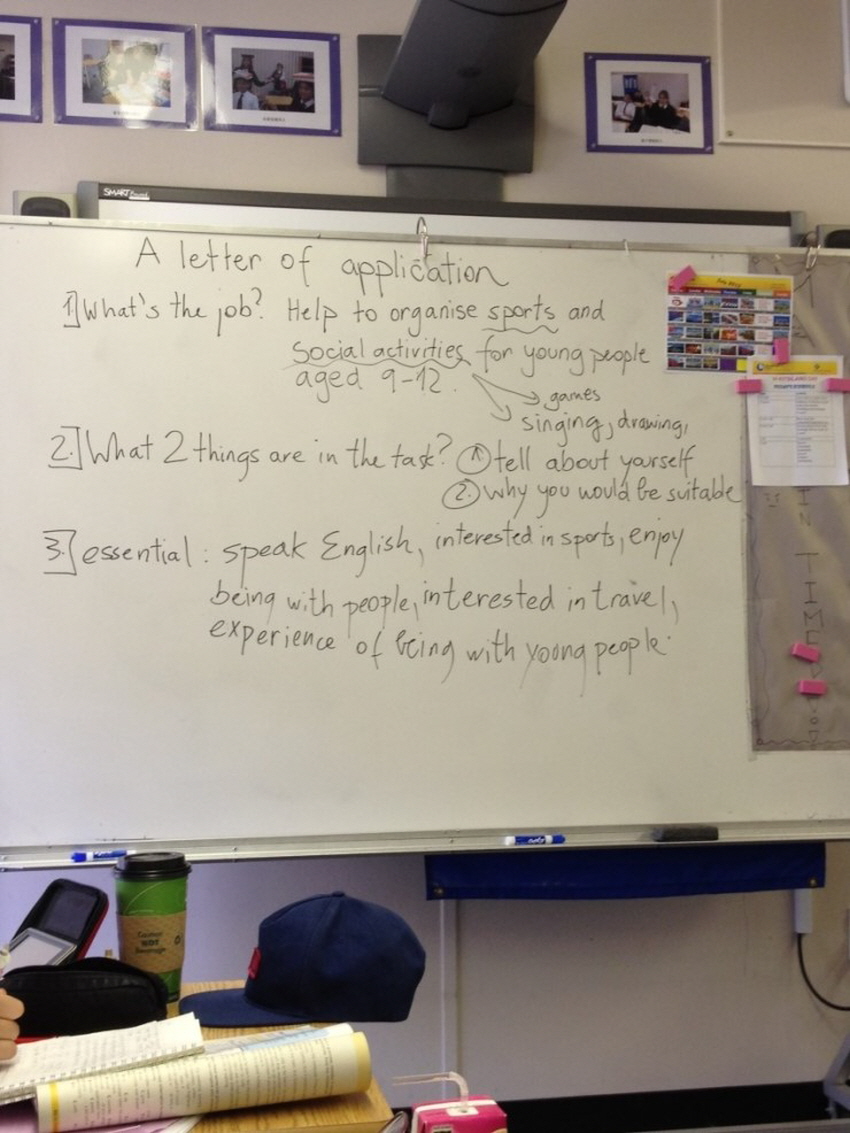 SMART Board
A letter of application
1] What's the job? Help to organise sports and
social activities for young people
aged 9-12.
games
singing, drawing,
2.] What 2 things are in the task? 1 tell about yourself
2. why you would be suitable
3.] essential: speak English, interested in sports, enjoy
being with people, interested in travel,
experience of being with young people.
IN
TIME
Caution
HOT
Beverage